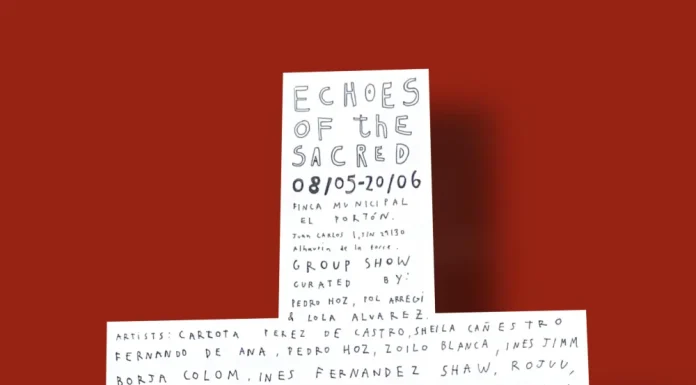 ECHOES
OF the
SACRED
08/05-20/06
FINCA MUNICIPAL
EL PORTÓN.
Juan CARLOS I, S/N 29130
Alhaurín de la torre.
GROUP SHOW
CURATED BY:
PEDRO HOZ, POL ARREGI
& LOLA ALVAREZ.
ARTISTS: CARLOTA PEREZ DE CASTRO, SHEILA CAÑESTRO
FERNANDO DE ANA, PEDRO HOZ, ZOILO BLANCA, INES JIMM
BORJA COLOM, INES FERNANDEZ SHAW, ROJUU,